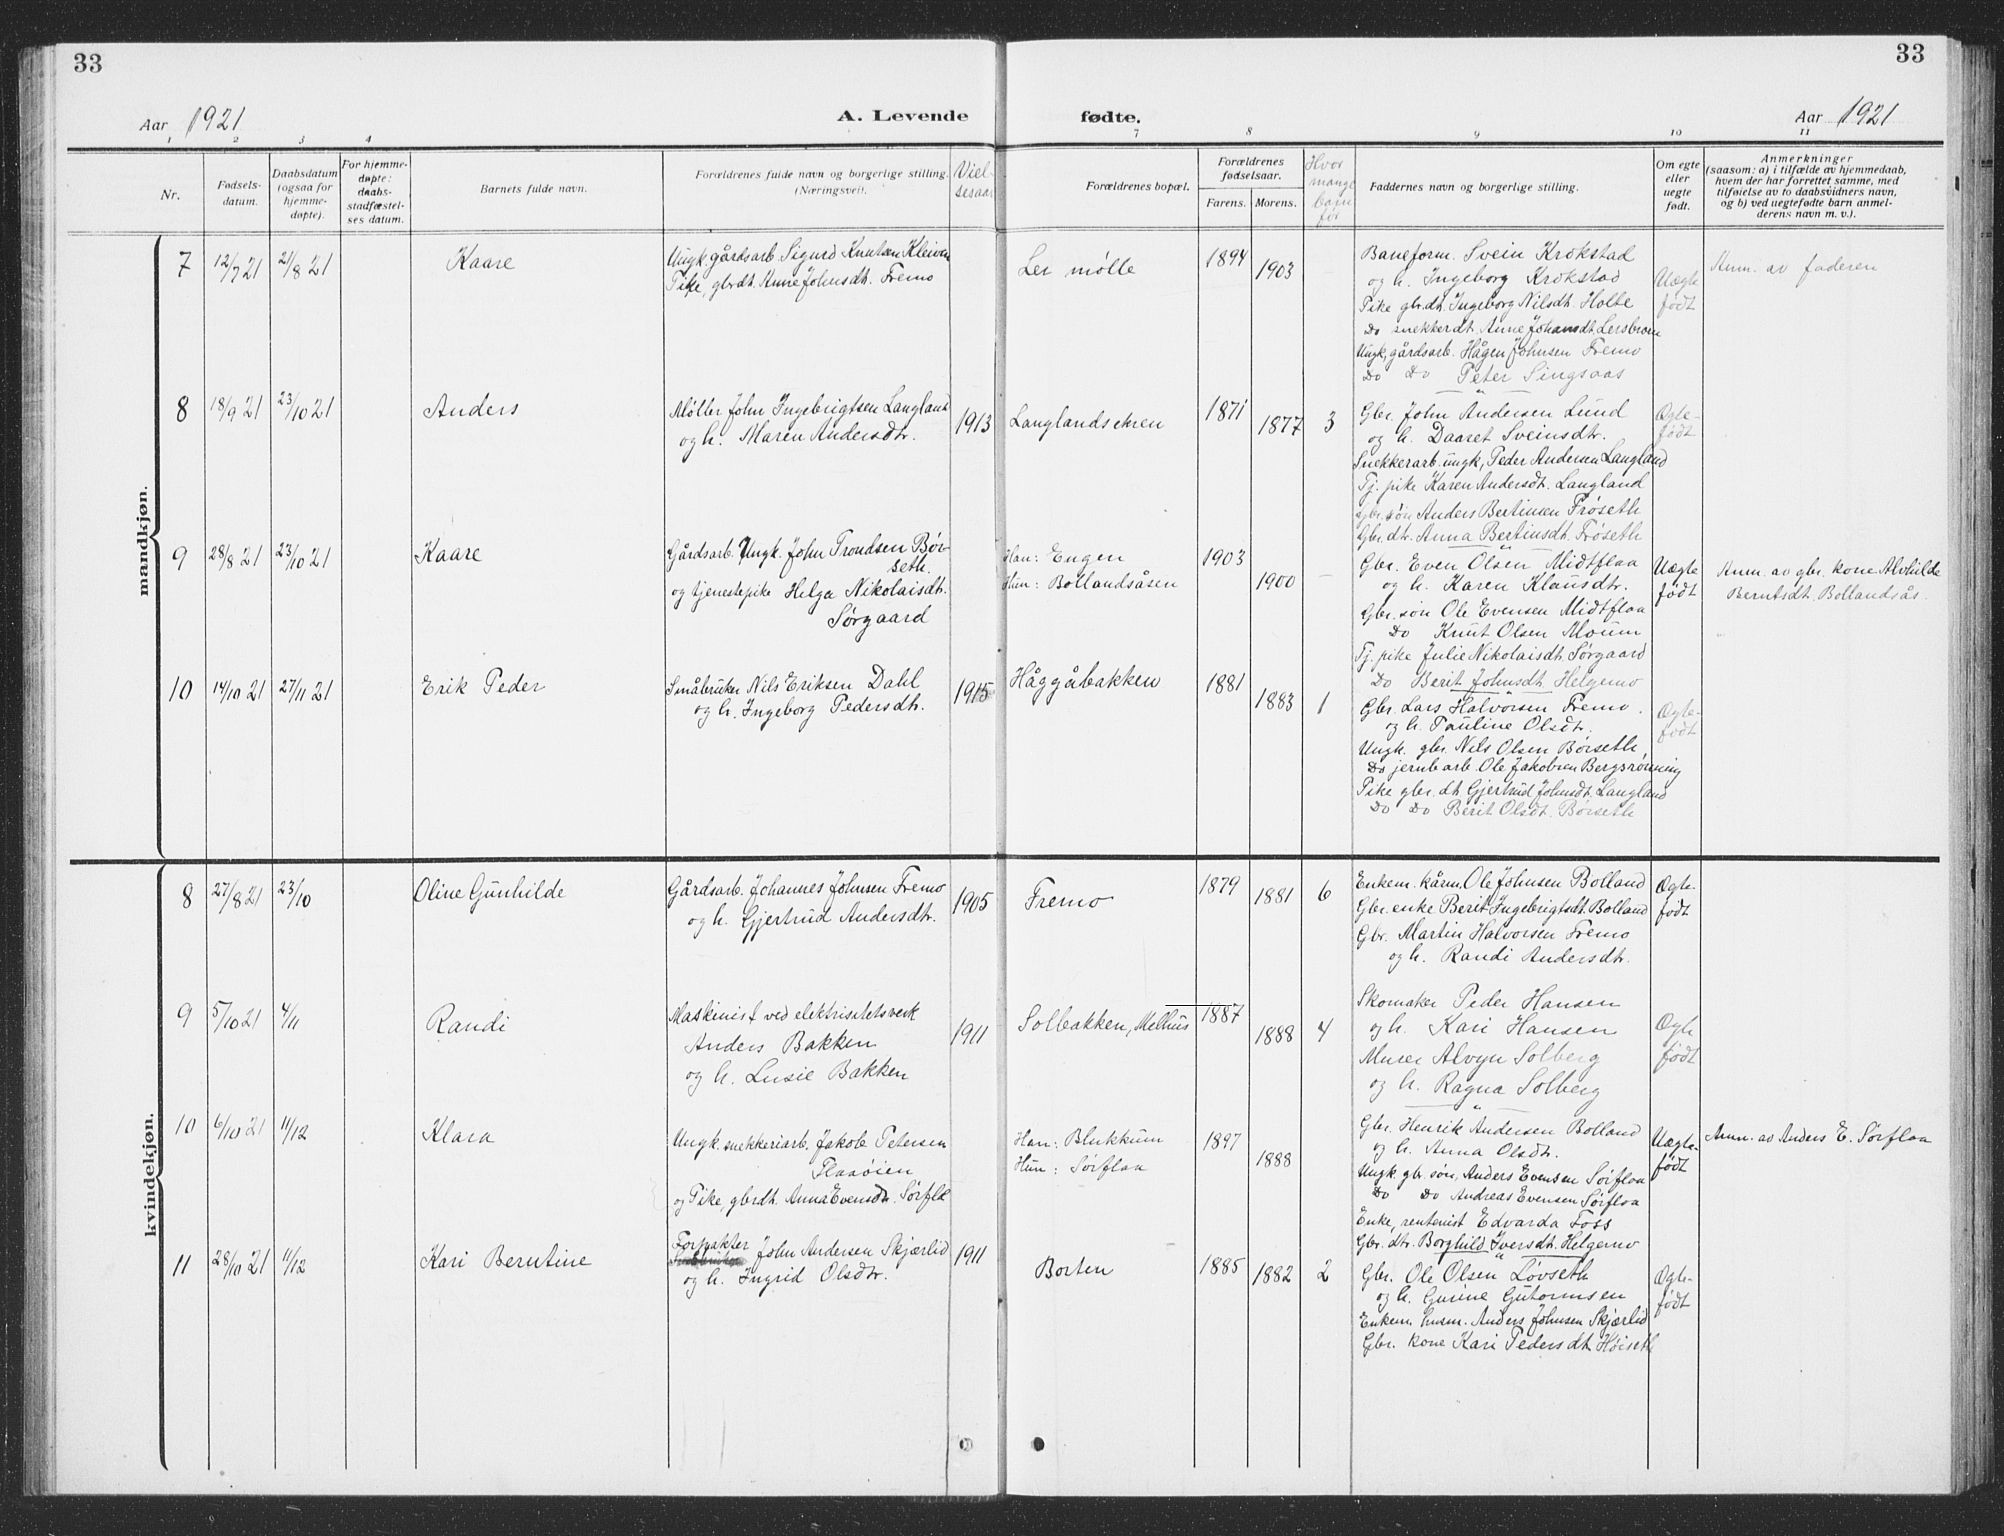 33
33
Aar 1921
A. Levende fødte.
Aar 1921
1 2 3 4 7 8 9 10 11
Nr.
Fødsels-
datum.
Daabsdatum
(ogsaa for
hjemme-
døpte).
For hjemme-
døpte:
daabs-
stadfæstel-
ses datum.
Barnets fulde navn.
Forældrenes fulde navn og borgerlige stilling.
(Næringsvei).
Viel-
sesaar
Forældrenes bopæl.
Forældrenes
fødselsaar.
Farens. Morens.
Hvor
mange
barn
før
Faddernes navn og borgerlige stilling.
Om egte
eller
uegte
født.
Anmerkninger
(saasom: a) i tilfælde av hjemmedaab,
hvem der har forrettet samme, med
tilføielse av to daabsvidners navn,
og b) ved uegtefødte barn anmel-
derens navn m. v.).
mandkjøn.
7 12/7 21 21/8 21 Kaare
Ungk. gårdsarb. Sigurd Knutsen Kleiven
Pike, gbrdt. Anne Johnsdt. Fremo
Ler mølle 1894 1903
Baneform. Svein Krokstad
og h. Ingeborg Krokstad
Pike gbr.dt. Ingeborg Nilsdt. Holte
Do snekkerdt. Anne Johansdt. Lersbroen
Ungk, gårdsarb. Hågen Johnsen Fremo
Do Do Peter Singsaas
Uægte
født
Anm. av faderen
8 18/9 21 23/10 21 Anders
Møller John Ingebrigtsen Langland
og h. Maren Andersdtr.
1913 Langlandsøren 1871 1877 3
Gbr. John Andersen Lund
og h. Daaret Sveinsdtr.
Snekkerarb. ungk, Peder Andersen Langland
Tj. pike Karen Andersdt. Langland
Gbr. søn Anders Bertinsen Frøseth
Gbr. dt. Anna Bertinsdt. Frøseth
Ægte-
født
9 28/8 21 23/10 21 Kaare
Gårdsarb. Ungk. John Trondsen Bør-
seth.
og tjenestepike Helga Nikolaisdt.
Sørgaard
Han: Engen
Hun: Bollandsåsen
1903 1900 –
Gbr. Even Olsen Midtflaa
og h. Karen Klausdtr.
Gbr. søn Ole Evensen Midtflaa
Do Knut Olsen Moum
Tj. pike Julie Nikolaisdt. Sørgaard
Do Berit Johnsdt. Helgemo
Uægte
født
Anm. av gbr. kone Alvhilde
Berntsdt. Bollandsås.
10 14/10 21 27/11 21 Erik Peder
Småbruker Nils Eriksen Dahl
og h. Ingeborg Pedersdt.
1915 Håggåbakken 1881 1883 1
Gbr. Lars Halvorsen Fremo.
og h. Pauline Olsdtr.
Ungk. gbr. Nils Olsen Børseth,
Do jernbarb. Ole Jakobsen Bergsrønning
Pike gbr. dt Gjertrud Johnsdt. Langland
Do Do Berit Olsdt. Børseth
Ægte-
født
kvindekjøn.
8 27/8 21 23/10 Oline Gunhilde
Gårdsarb. Johannes Johnsen Fremo
og h. Gjertrud Andersdtr.
1905 Fremo 1879 1881 6
Enkem. kårm. Ole Johnsen Bolland
Gbr. enke Berit Ingebrigtsdt. Bolland
Gbr. Martin Halvorsen Fremo
og h. Randi Andersdtr.
Ægte-
født
9 5/10 21 4/11 Randi
Maskinist ved elektrisitetsverk
Anders Bakken
og h. Lusie Bakken
1911 Solbakken, Melhus 1887 1888 4
Skomaker Peder Hansen
og h. Kari Hansen
Murer Alvyn Solberg
og h. Ragna Solberg
Ægte
født
10 6/10 21 11/12 Klara
Ungk. snekkeriarb. Jakob Petersen
Flaaøien
og Pike, gbrdt. Anna Evensdt. Sørflå
Han: Blukkum
Hun: Sørflaa
1897 1888
Gbr. Henrik Andersen Bolland
og h. Anna Olsdt.
Ungk. gbr. søn, Anders Evensen Sørflaa
Do Do Andreas Evensen Sørflaa
Enke, rentenist Edvarda Foss
Gbr. dtr. Borghild Iversdt. Helgemo
Uægte-
født
Anm. av Anders E. Sørflaa
11 28/10 21 11/12 Kari Berntine
Forpakter John Andersen Skjærlid
og h. Ingrid Olsdtr.
1911 Borten 1885 1882 2
Gbr. Ole Olsen Løvseth
og h. Gurine Gutormsen
Enkem. husm. Anders Johnsen Skjærlid
Gbr. kone Kari Pedersdt. Høiseth
Ægte-
født